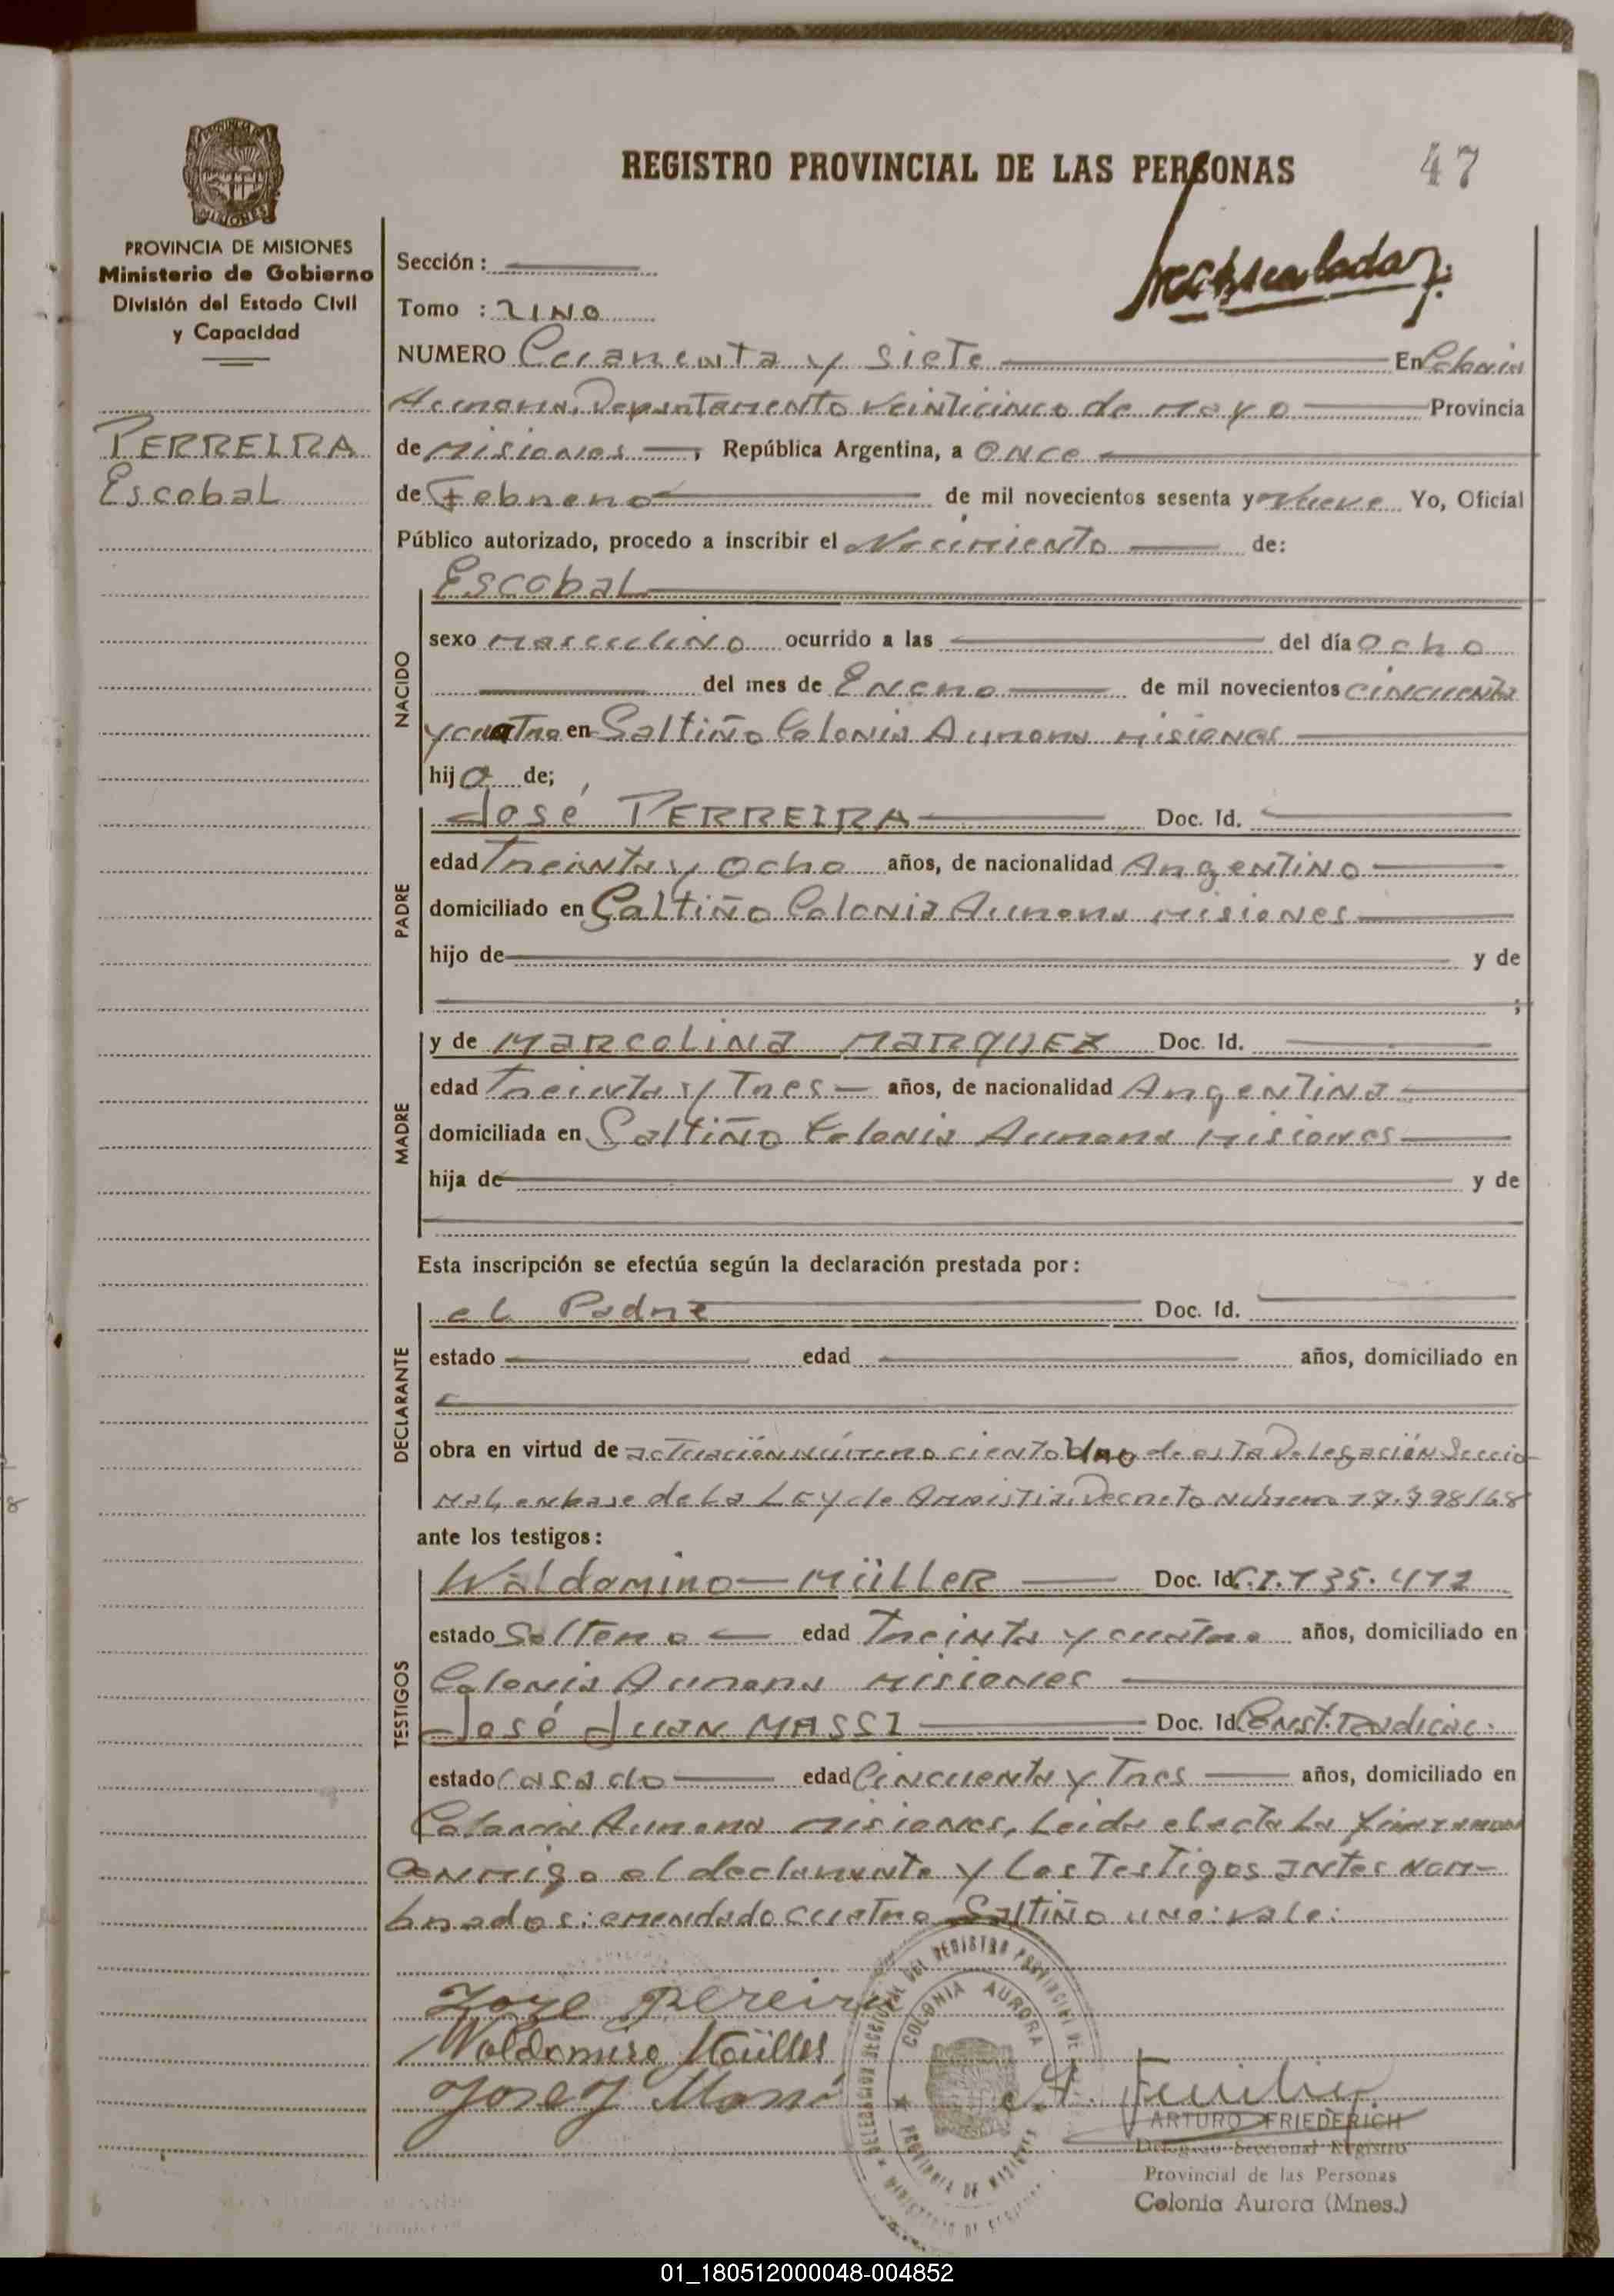 REGISTRO PROVINCIAL DE LAS PERSONAS
47
PROVINCIA DE MISIONES
Ministerio de Gobierno
División del Estado Civil
y Capacidad
PERREIRA
Escobal
Sección :
Tomo : UNO
NUMERO Cuarenta y siete En Colonia
Aurora, Departamento Veinticinco de Mayo Provincia
de Misiones, República Argentina, a once
de Febrero de mil novecientos sesenta y nueve Yo, Oficial
Público autorizado, procedo a inscribir el Nacimiento de:
NACIDO
Escobal
sexo masculino ocurrido a las del día ocho
del mes de Enero de mil novecientos cincuenta
y cuatro en Saltiño Colonia Aurora Misiones
hijo de;
PADRE
José PERREIRA Doc. Id.
edad Treinta y Ocho años, de nacionalidad Argentino
domiciliado en Saltiño Colonia Aurora Misiones
hijo de y de
;
MADRE
y de MARCOLINA MARQUEZ Doc. Id.
edad Treinta y Tres años, de nacionalidad Argentina
domiciliada en Saltiño Colonia Aurora Misiones
hija de y de
Esta inscripción se efectúa según la declaración prestada por :
DECLARANTE
el Padre Doc. Id.
estado edad años, domiciliado en
obra en virtud de actuación número ciento Uno de esta Delegación Seccio
nal, en base de La Ley de Amnistia, Decreto Número 17.798/68
ante los testigos :
TESTIGOS
Waldomiro Müller Doc. Id. C.I. 735.412
estado Soltero edad Treinta y cuatro años, domiciliado en
Colonia Aurora Misiones
José Juan MASSI Doc. Id. Const. Radicac.
estado casado edad Cincuenta y Tres años, domiciliado en
Colonia Aurora Misiones, Leida el acta La firman
conmigo el declarante y Los Testigos antes nom-
brados: emendado cuatro Saltiño uno: vale:
Jose Pereira
Waldomiro Müller
Jose J Massi
COLONIA AURORA
PROVINCIA DE MISIONES
ARTURO FRIEDERICH
Delegado Seccional Registro
Provincial de las Personas
Colonia Aurora (Mnes.)
01_180512000048-004852